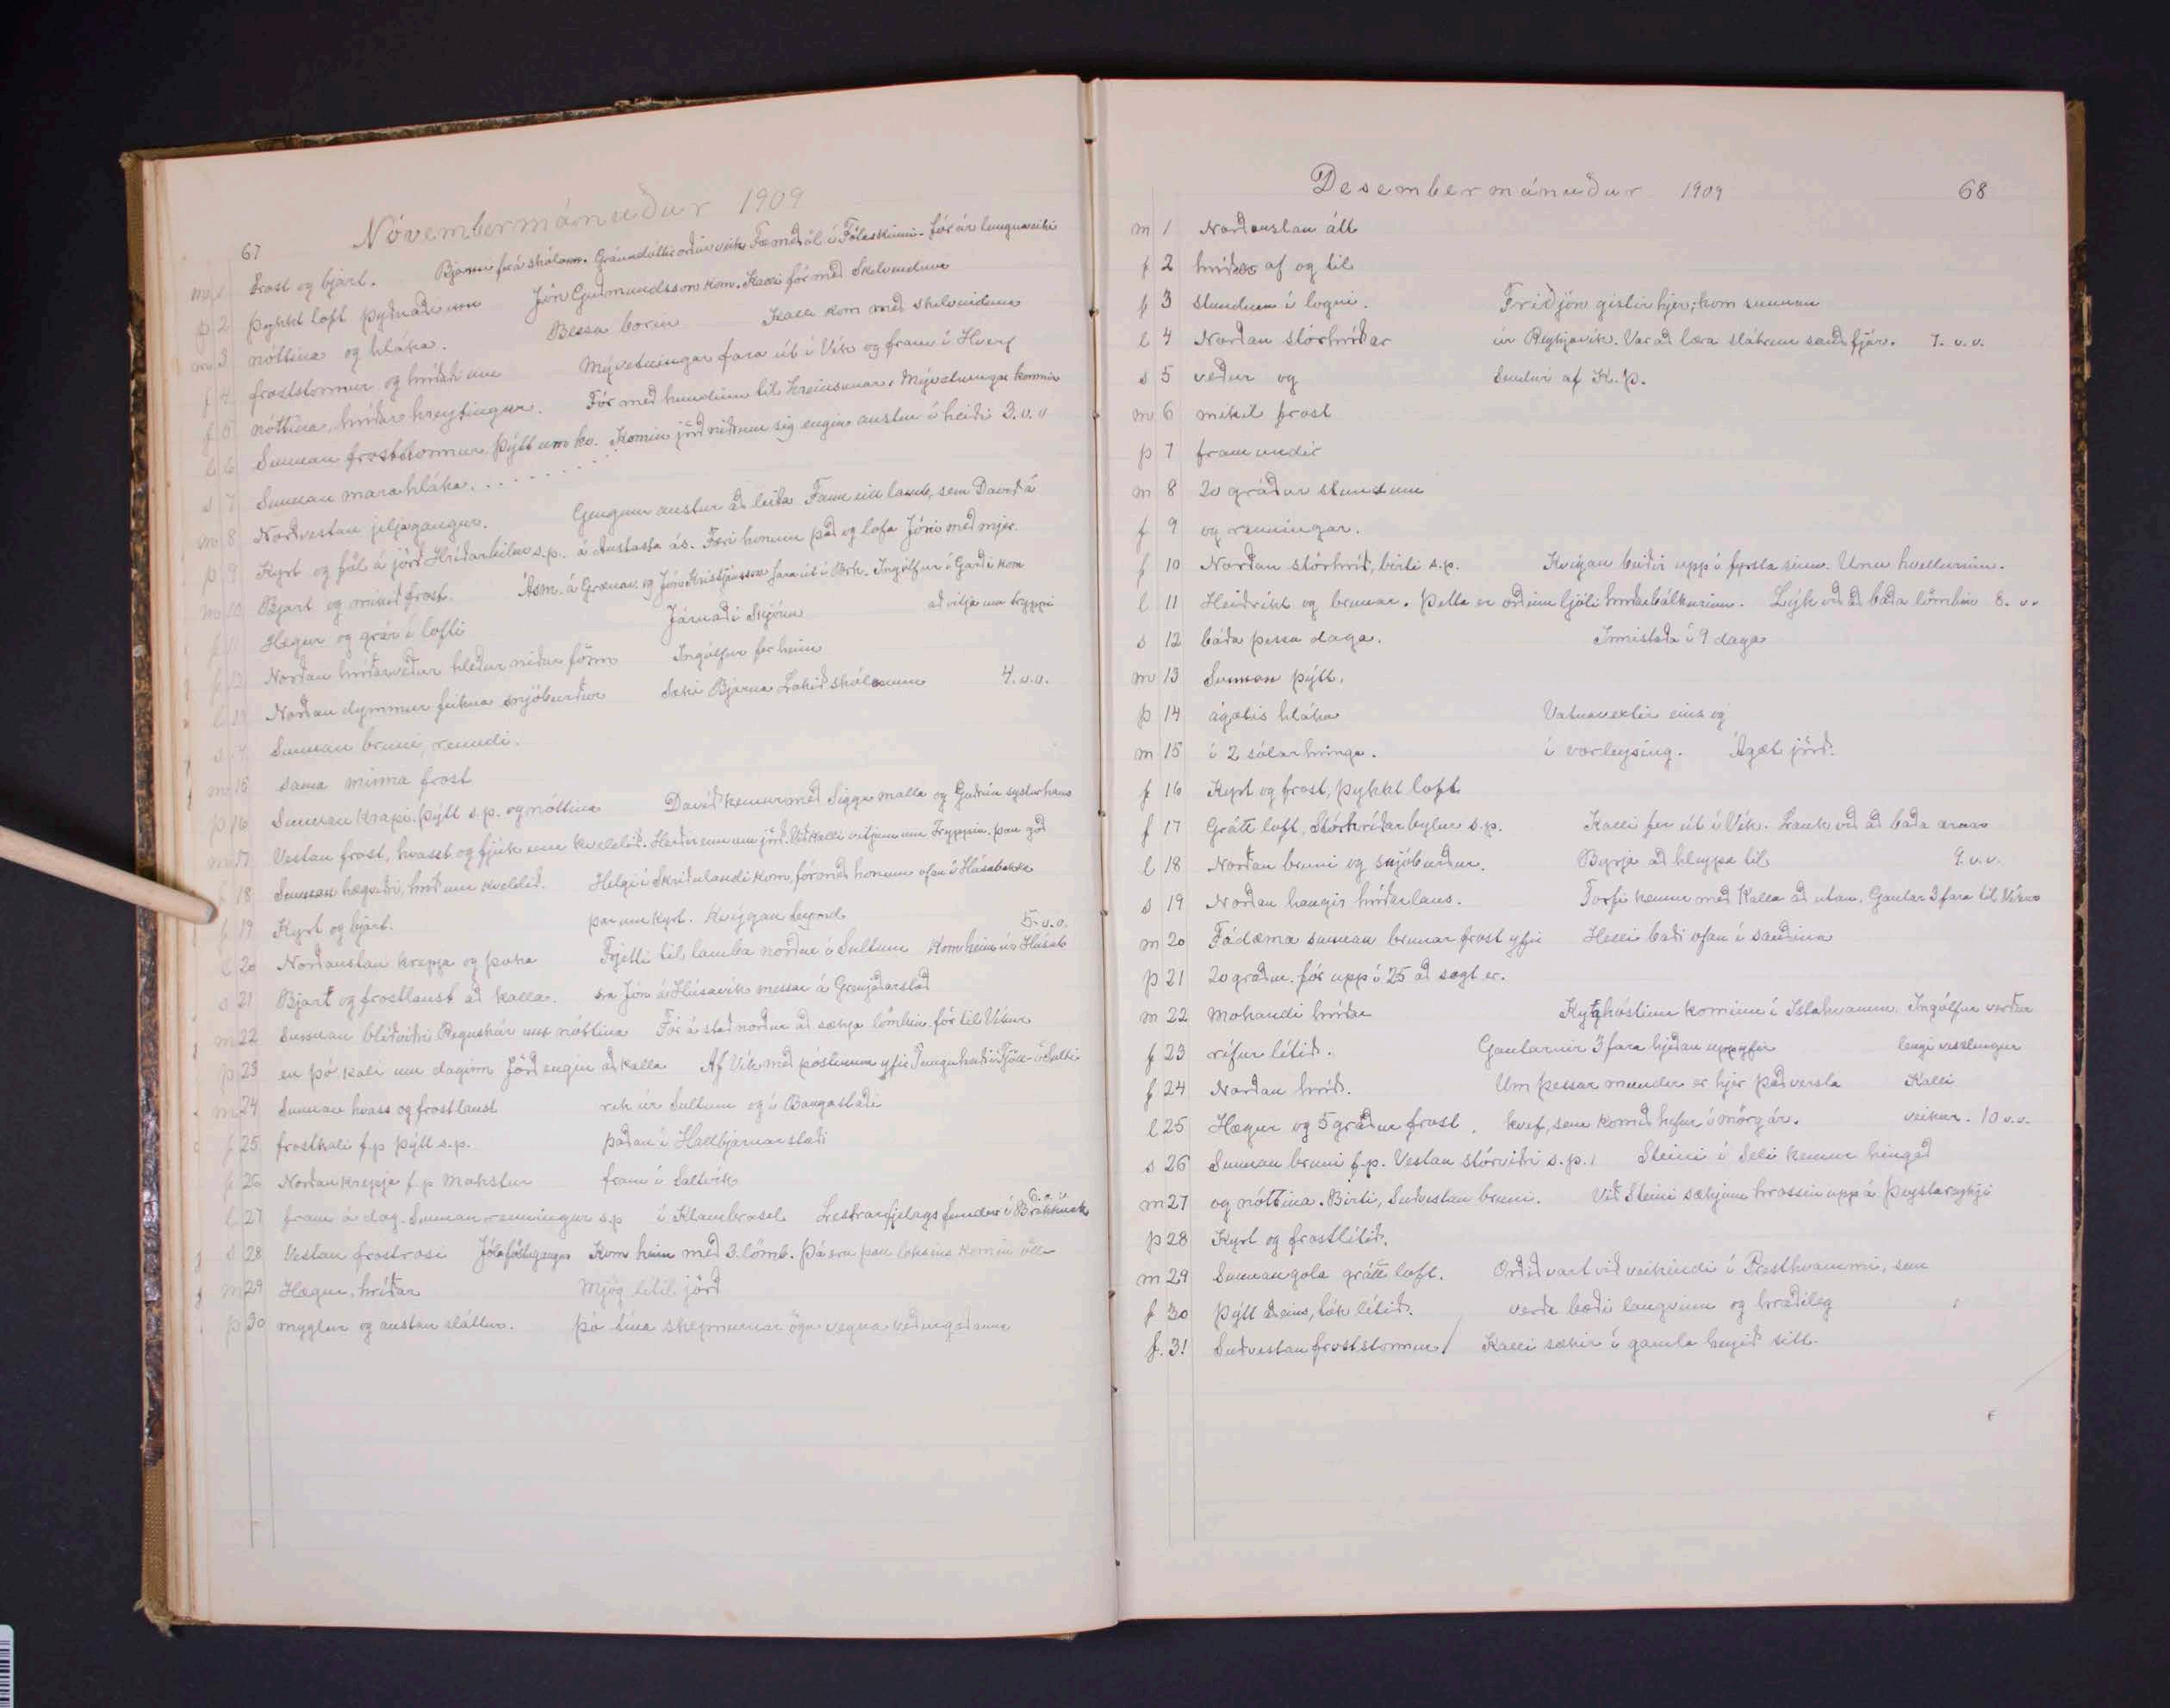 67
Nóvembermánuður 1909
m 1 Frost og bjart. Bjarni frá skólanum. Gránudóttir orðin veik
þ 2 Þykkt loft þyðnaði um Jón Guðmundsson kom. Kalli fór með Skilvindum
m 3 nóttina og hláka. Bessa borin Kalli kom með skilvinduna
f 4 froststormur og hríðar um Mývetningar fara út í Vík og fram í Hverf
f 5 nóttina, hríðar hreytingur. Fór með hundinn til hreinsunar. Mývetningar komnir
l 6 Sunnan froststormur. Þýtt um kv. Komin jörð niðrum sig engin austur í heiði 3. v. v
s 7 Sunnan marahláka.
m 8 Norðvestan jeljagangur. Gengum austur að leita Fann eitt lamb, sem Davíð á
þ 9 Kyrt og föl á jörð Hríðarbilur s.p. á Austasta ás. Færi honum það og lofa Jóni með mjer.
m 10 Bjart og mikið frost. Ásm. á Grænav. og Jón Kristjánsson fara út í Brk. Ingólfur í Garði kom
f 11 Hægur og grár í lofti Járnaði Skjóna að vitja um tryppi
f 12 Norðan hríðarveður hleður niður fönn Ingólfur fer heim
l 13 Norðan dymmur feikna snjóburður Sæki Bjarna Lokið skólanum 4. v. v.
s 14 Sunnan bruni, renndi.
m 15 sama minna frost
þ 16 Sunnan krapi. þýtt s.p. og nóttina Davíð kemur með Sigga malla og Guðrún systur hans
m 17 Vestan frost, hvasst og fjúk um kveldið.
f 18 Sunnan hægviðri, hríð um kveldið. Helgi í Skriðulandi kom, fór með honum ofan í Húsabakka
f 19 Kyrt og bjart. þar um kyrt. Kvígan beyrd 5. v. v.
l 20 Norðaustan krepja og þoka Frjetti til lamba norður í Sultum Kom heim úr Húsab
s 21 Bjart og frostlaust að kalla. sra Jón á Húsavík messar á Grenjaðarstað
m 22 Sunnan blíðviðri Regnskúr um nóttina Fór á stað norður að sækja lömbin. fór til Víkur
þ 23 en þó kali um daginn Jörð engin að kalla Af Vík með póstinum yfir Tunguheiði í Fjöll - í Sulti
m 24 Sunnan hvass og frostlaust rek úr Sultum og í Bangastaði
f 25 frostkali f.p þýtt s.p. þaðan í Hallbjarnarstaði
f 26 Norðan krepja f.p Mokstur fram í Saltvík
l 27 fram á dag. Sunnan renningur s.p í Klambrasel Lestrarfjelagsfundur í Brekknak 6. v. v
s 28 Vestan frostrosi Jólaföstuinngangur Kom heim með 3. lömb. Þá eru þau loksins komin öll
m 29 Hægur, hríðar Mjög lítil jörð
þ 30 myglur og austan sláttur. þó tína skepnurnar ögn vegna veðurgæðanna
Desembermánuður 1909 68
m 1 Norðaustan átt
f 2 hríðar af og til
f 3 stundum í logni. Friðjón gistir hjer; kom sunnan
l 4 Norðan stórhríðar úr Reykjavík. Var að læra slátrun sauðfjár. 7. v. v.
s 5 veður og Sendur af K. Þ.
m 6 mikil frost
þ 7 fram undir
m 8 20 gráður stundum
f 9 og renningar.
f 10 Norðan stórhríð, birti s.p. Kvígan beiðir upp í fyrsta sinn.
l 11 Heiðríkt og brunar. Þetta er orðinn ljóti hríðarbálkurinn. Lýk við að baða lömbin 8. v.
s 12 báða þessa daga. Innistaða í 9 daga
m 13 Sunnan þýtt.
þ 14 ágætis hláka Vatnavextir eins og
m 15 í 2 sólarhringa. í vorleysing. Ágæt jörð.
f 16 Kyrt og frost, þykkt loft
f 17 Grátt loft, Stórhríðarbylur s.p. Kalli fer út í Vík. Lauk við að baða ærnar
l 18 Norðan bruni og snjóburður. Byrja að hleypa til 9. v. v.
s 19 Norðan hangir hríðarlaus. Torfi kemur með Kalla að utan. Gautar 3 fara til Víkur
m 20 Fádæma sunnan brunar frost yfir Helli baði ofan í sauðina
þ 21 20 gráður. fór upp í 25 að sagt er.
m 22 Mohandi hríðar Kyghóstinn kominn í Ystahvamm. Ingólfur verður
f 23 rífur lítið. Gautarnir 3 fara hjeðan uppyfir lengi vesslingur
f 24 Norðan hríð. Um þessar mundir er hjer það versta Kalli
l 25 Hægur og 5 gráður frost. kvef, sem komið hefur í mörg ár. veikur. 10 v.v.
s 26 Sunnan bruni f.p. Vestan stórviðri s.p. Steini í Seli kemur hingað
m 27 og nóttina. Birti, Suðvestan bruni. Við Steini sækjum hrossin upp á Þeystareyki
þ 28 Kyrt og frostlítið.
m 29 Sunnangola grátt loft. Orðið vart við veikindi í Presthvammi, sem
f 30 Þýtt aðeins, tók lítið. verða bæði langvinn og hræðileg
f. 31 Suðvestan froststormur! Kalli sækir í gamla heyið sitt.